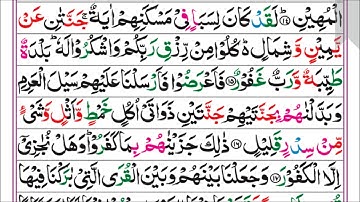 الْمُهِيْنِ ؕ﴿۱۴﴾ لَقَدْ كَانَ لِسَبَاٍ فِيْ مَسْكَنِهِمْ اٰيَةٌ ۚ جَنَّتٰنِ عَنْ
يَّمِيْنٍ وَّ شِمَالٍ ؕ۬ كُلُوْا مِنْ رِّزْقِ رَبِّكُمْ وَاشْكُرُوْا لَهٗ ؕ بَلْدَةٌ
طَيِّبَةٌ وَّ رَبٌّ غَفُوْرٌ ﴿۱۵﴾ فَاَعْرَضُوْا فَاَرْسَلْنَا عَلَيْهِمْ سَيْلَ الْعَرِمِ
وَ بَدَّلْنٰهُمْ بِجَنَّتَيْهِمْ جَنَّتَيْنِ ذَوَاتَيْ اُكُلٍ خَمْطٍ وَّ اَثْلٍ وَّ شَيْءٍ
مِّنْ سِدْرٍ قَلِيْلٍ ﴿۱۶﴾ ذٰلِكَ جَزَيْنٰهُمْ بِمَا كَفَرُوْا ؕ وَ هَلْ نُجٰزِيْۤ
اِلَّا الْكَفُوْرَ ﴿۱۷﴾ وَ جَعَلْنَا بَيْنَهُمْ وَ بَيْنَ الْقُرَى الَّتِيْ بٰرَكْنَا فِيْهَا